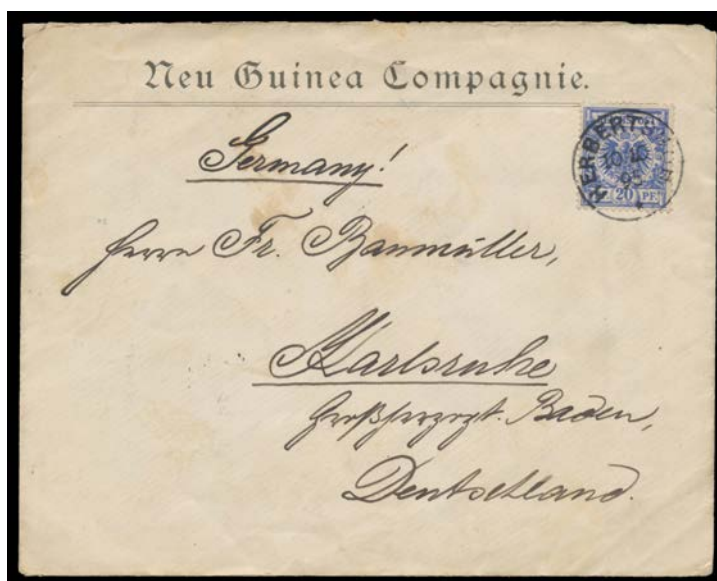 Neu Guinea Compagnie.
Germany!
HERBERTSHÖH
95
20 PF
Herrn Fr. Baumüller,
Karlsruhe
Großherzogt. Baden,
Deutschland.